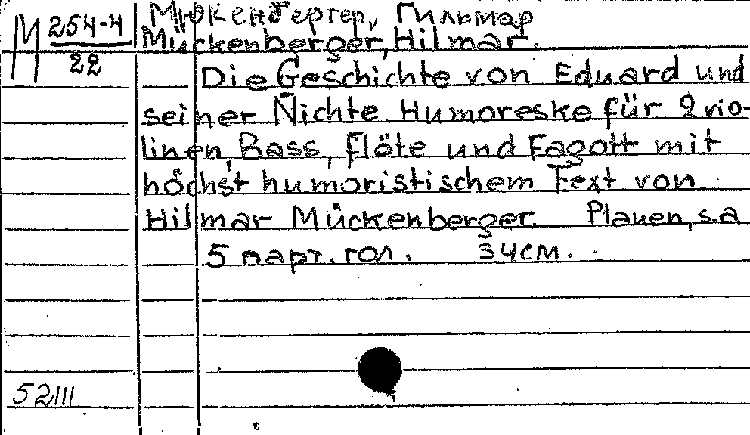 М 254-4
22
Мюкенбергер, Гильмар
Mückenberger, Hilmar.
Die Geschichte von Eduard und
seiner Nichte Humoreske für 2 vio-
linen, Bass, Flöte und Fagott mit
höchst humoristischem Text von
Hilmar Mückenberger. Plauen, s.a
5 парт. гол. 34см.
52III